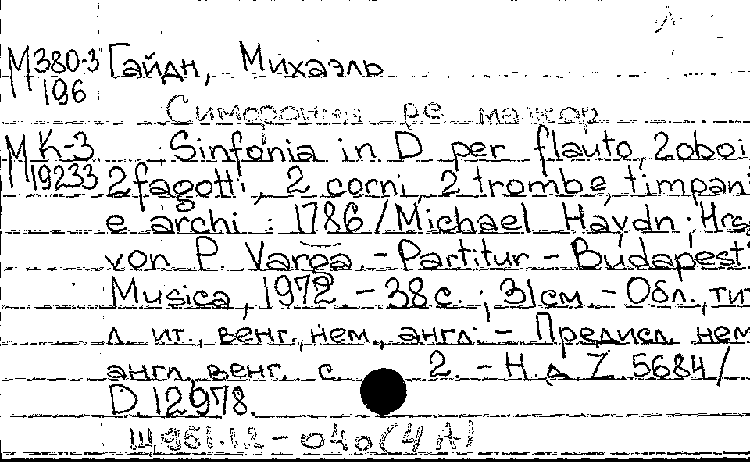 М380-3 Гайдн, Михаэль
196
Симфония ре мажор
М К-3 Sinfonia in D per flauto, 2 oboi
19233 2 fagotti, 2 corni, 2 trombe, timpani
e archi : 1786 / Michael Haydn ; Hrsg
von P. Varga. - Partitur - Budapest
Musica, 1972. - 38 с. ; 31 см. - Обл., тит
л. ит., венг., нем., англ. - Предисл. нем
англ., венг. с. 2. - Н. д. Z 5684/
D. 12978.
Щ961.1.2-040(4А)